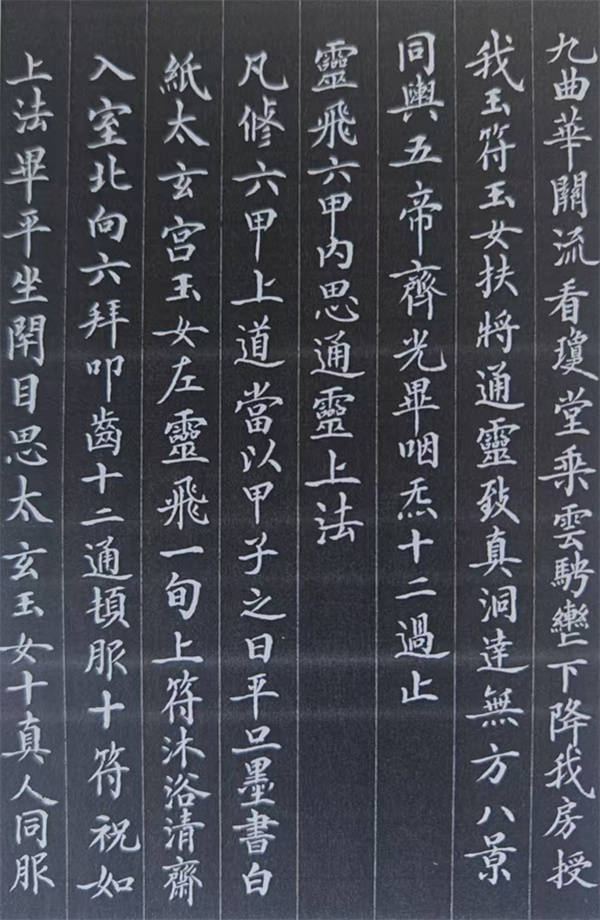 九曲華關流看瓊堂乘雲騁轡下降我房授
我玉符玉女扶將通靈致真洞達無方八景
同輿五帝齊光畢咽炁十二過止
靈飛六甲內思通靈上法
凡修六甲上道當以甲子之日平旦墨書白
紙太玄宮玉女左靈飛一旬上符沐浴清齋
入室北向六拜叩齒十二通頓服十符祝如
上法畢平坐閇目思太玄玉女十真人同服